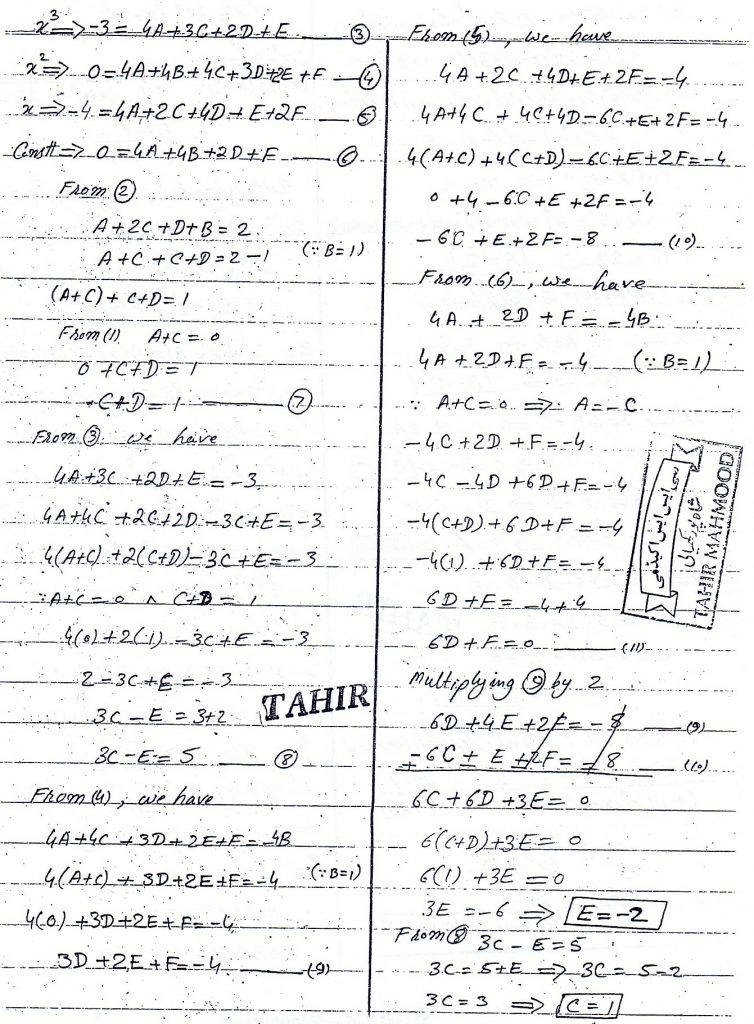 x³ ⇒ -3 = 4A+3C+2D+E ③
x² ⇒ 0 = 4A+4B+4C+3D+2E+F ④
x ⇒ -4 = 4A+2C+4D+E+2F ⑤
Constt ⇒ 0 = 4A+4B+2D+F ⑥
From ②
A+2C+D+B = 2
A+C+C+D = 2-1 (∵ B=1)
(A+C)+C+D = 1
From (1) A+C = 0
0+C+D = 1
C+D = 1 ⑦
From ③ we have
4A+3C+2D+E = -3
4A+4C+2C+2D-3C+E = -3
4(A+C)+2(C+D)-3C+E = -3
∵ A+C = 0 ∧ C+D = 1
4(0)+2(1)-3C+E = -3
2-3C+E = -3
3C-E = 3+2
3C-E = 5 ⑧
TAHIR
From (4), we have
4A+4C+3D+2E+F = -4B
4(A+C)+3D+2E+F = -4 (∵ B=1)
4(0)+3D+2E+F = -4
3D+2E+F = -4 (9)
From (5), we have
4A+2C+4D+E+2F = -4
4A+4C+4C+4D-6C+E+2F = -4
4(A+C)+4(C+D)-6C+E+2F = -4
0+4-6C+E+2F = -4
-6C+E+2F = -8 (10)
From (6), we have
4A+2D+F = -4B
4A+2D+F = -4 (∵ B=1)
∵ A+C = 0 ⇒ A = -C
-4C+2D+F = -4
-4C-4D+6D+F = -4
-4(C+D)+6D+F = -4
-4(1)+6D+F = -4
6D+F = -4+4
6D+F = 0 (11)
سی ایس ایس اکیڈمی
TAHIR MAHMOOD
Multiplying ⑨ by 2
6D+4E+2F = -8 (9)
-6C ± E ± 2F = -8 (10)
6C+6D+3E = 0
6(C+D)+3E = 0
6(1)+3E = 0
3E = -6 ⇒ E = -2
From ⑧ 3C-E = 5
3C = 5+E ⇒ 3C = 5-2
3C = 3 ⇒ C = 1